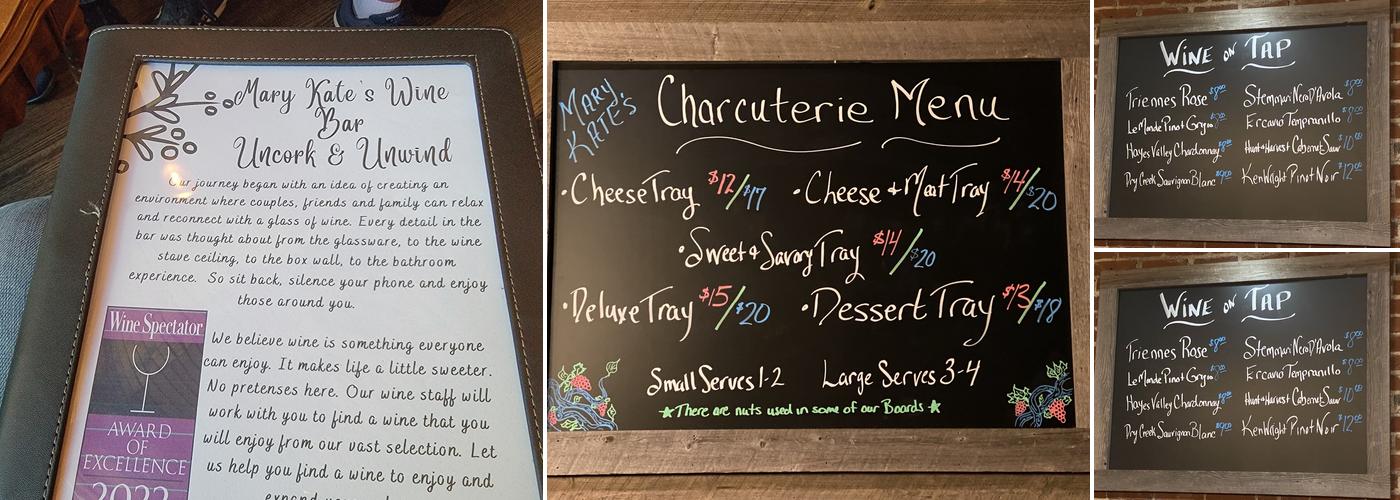 Mary Kate's Wine
Bar
Uncork & Unwind
Our journey began with an idea of creating an
environment where couples, friends and family can relax
and reconnect with a glass of wine. Every detail in the
bar was thought about from the glassware, to the wine
stave ceiling, to the box wall, to the bathroom
experience. So sit back, silence your phone and enjoy
those around you.
Wine Spectator
AWARD
OF
EXCELLENCE
2022
We believe wine is something everyone
can enjoy. It makes life a little sweeter.
No pretenses here. Our wine staff will
work with you to find a wine that you
will enjoy from our vast selection. Let
us help you find a wine to enjoy and
MARY
KATE'S
Charcuterie Menu
•Cheese Tray $12/$17
•Cheese & Meat Tray $14/$20
•Sweet & Savory Tray $14/$20
•Deluxe Tray $15/$20
•Dessert Tray $13/$18
Small Serves 1-2 Large Serves 3-4
★There are nuts used in some of our Boards★
WINE ON TAP
Triennes Rose $8.00
Le Monde Pinot Grigio
Hayes Valley Chardonnay
Dry Creek Sauvignon Blanc
Stemmari Nero D'Avola $8.00
Ercavio Tempranillo
Hunt & Harvest Cabernet Sauv $10.00
Ken Wright Pinot Noir $12.00
WINE ON TAP
Triennes Rose $8.00
Le Monde Pinot Grigio
Hayes Valley Chardonnay
Dry Creek Sauvignon Blanc
Stemmari Nero D'Avola $8.00
Ercavio Tempranillo
Hunt & Harvest Cabernet Sauv $10.00
Ken Wright Pinot Noir $12.00